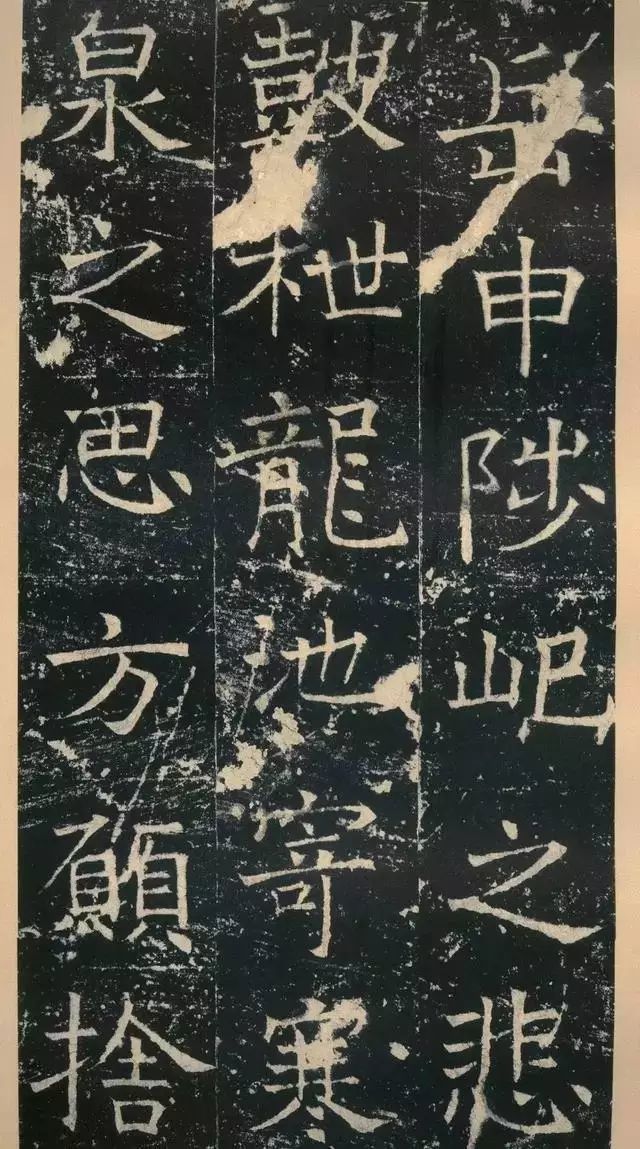 岳申陟屺之悲
皷枻龍池寄寒
泉之思方願捨